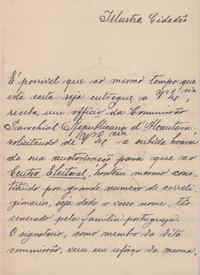 Illustre Cidadão
É possivel que ao mesmo tempo que
esta carta seja entregue a V. Exª
receba um officio da Commissão
Parochial Republicana d'Alcantara
solicitando de V. Exª a subida honra
de sua auctorisação para que ao
Centro Eleitoral, tambem mesmo cons-
tituido por grande numero de correli-
gionarios, seja dado o vosso nome, tão
venerado pela familia portugueza.
O signatario, como membro da dita
commissão, vem em reforço da mesma,